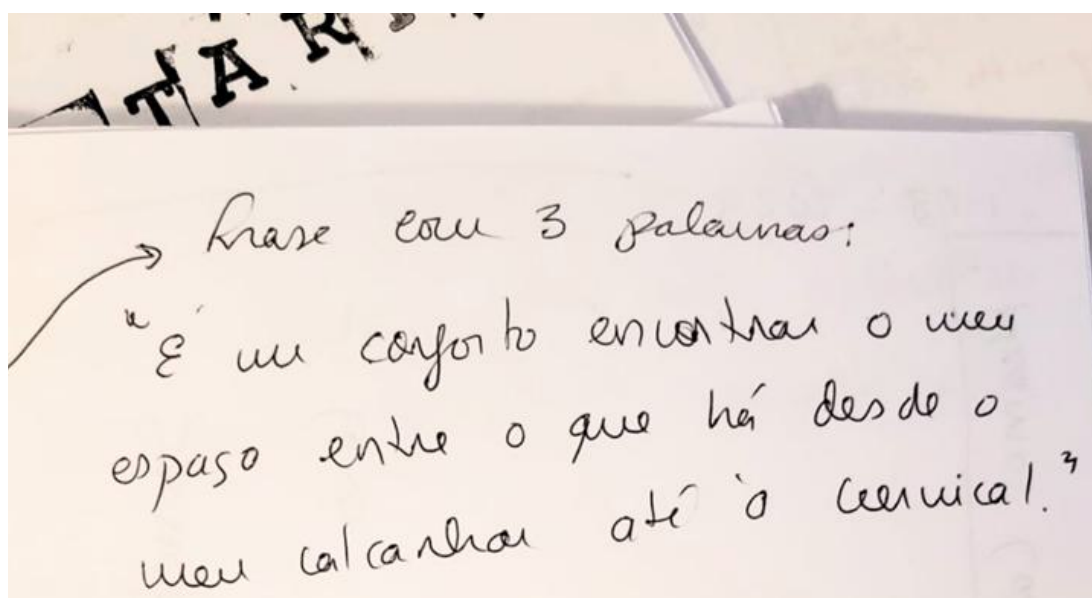 TAR
Frase com 3 palavras:
"É um conforto encontrar o meu
espaço entre o que há desde o
meu calcanhar até o cervical."